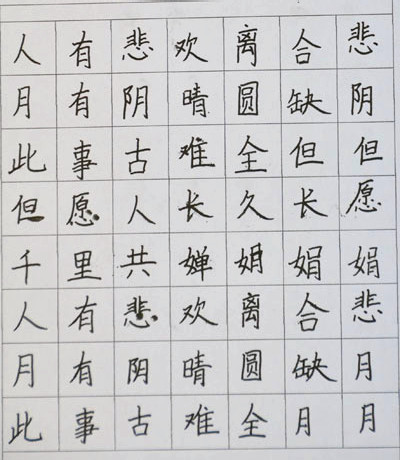 人有悲欢离合悲
月有阴晴圆缺阴
此事古难全但但
但愿人长久长愿
千里共婵娟娟娟
人有悲欢离合悲
月有阴晴圆缺月
此事古难全月月